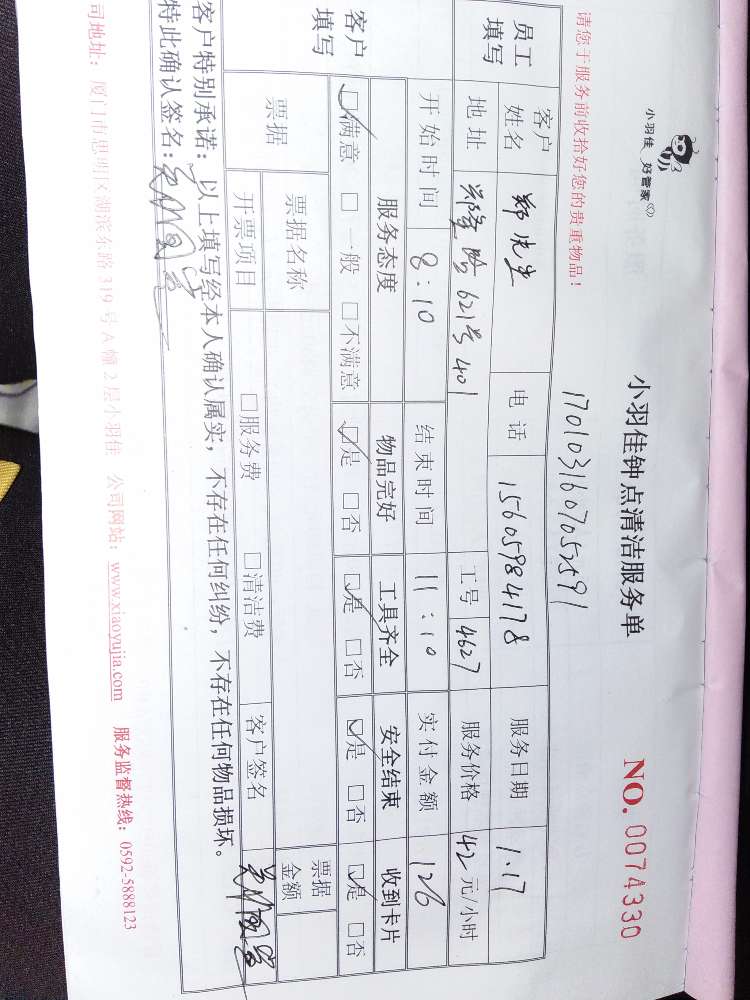 小羽佳 好管家
小羽佳钟点清洁服务单
NO. 0074330
1701031607052591
请您于服务前收拾好您的贵重物品!
员工填写 客户姓名 郑先生 电话 15605984178 服务日期 1.17
地址 621号401 工号 4627 服务价格 42 元/小时
客户填写 开始时间 8:10 结束时间 11:10 实付金额 126
服务态度 物品完好 工具齐全 安全结束 收到卡片
☑满意 □一般 □不满意 ☑是 □否 ☑是 □否 ☑是 □否 ☑是 □否
票据 票据名称 票据金额
开票项目 □服务费 □清洁费 客户签名
客户特别承诺:以上填写经本人确认属实,不存在任何纠纷,不存在任何物品损坏。
特此确认签名:
司地址:厦门市思明区湖滨东路 319 号 A 幢 2 层小羽佳 公司网站:www.xiaoyujia.com 服务监督热线:0592-5888123